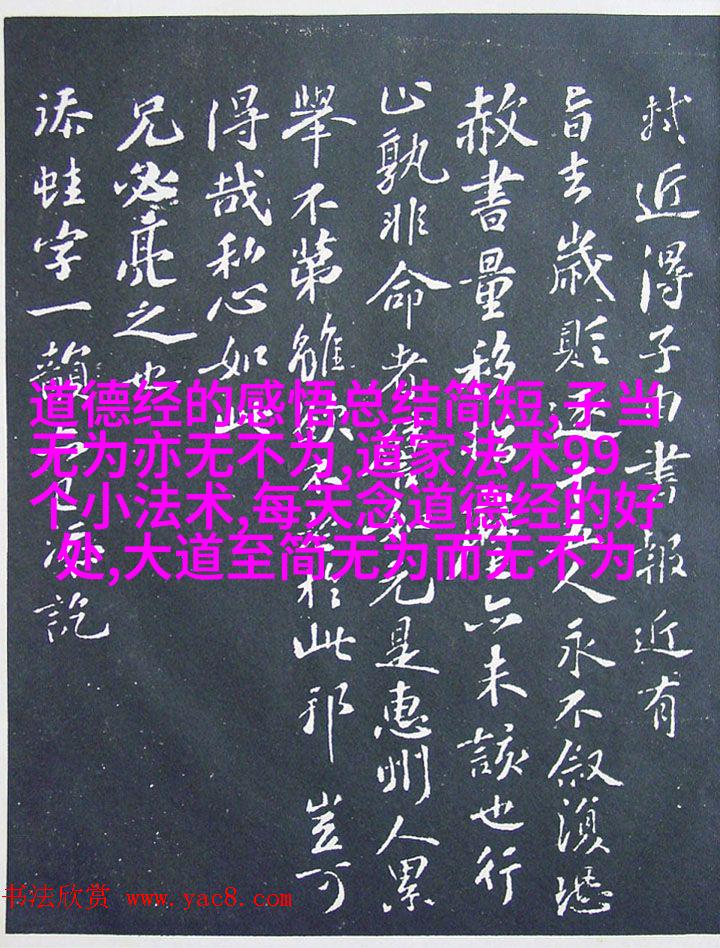 軾近得子由書報近有
旨去歲貶逐人永不叙恐
赦書量移亦未該也行
止孰非命者元是惠州人累
舉不第雖於此邪豈可
得哉私心如此
兄必亮之也
添蛙字一韻訖
道德经的感悟总结简短,子当
无为亦无不为,道家法术99
个小法术,每天念道德经的好
处,大道至简无为而无不为
书法欣赏 www.yac8.com